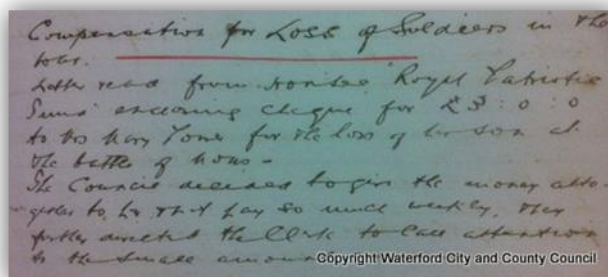 Compensation for Loss of Soldiers in the
War.
Letter read from Royal Patriotic
Fund enclosing cheque for £5 : 0 : 0
to Mrs Mary Power for the loss of her son at
the battle of Mons -
The Council decided to give the money alto-
gether to her & not pay so much weekly. They
further directed the Clerk to call attention
to the small
Copyright Waterford City and County Council